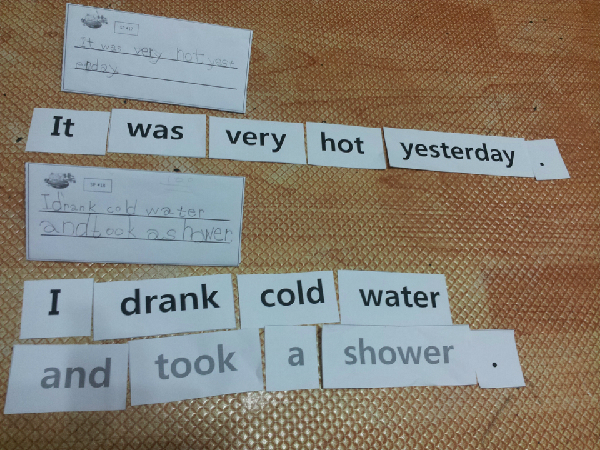 It was very hot yest
erday
It was very hot yesterday .
I drank cold water
and took a shower.
I drank cold water
and took a shower .